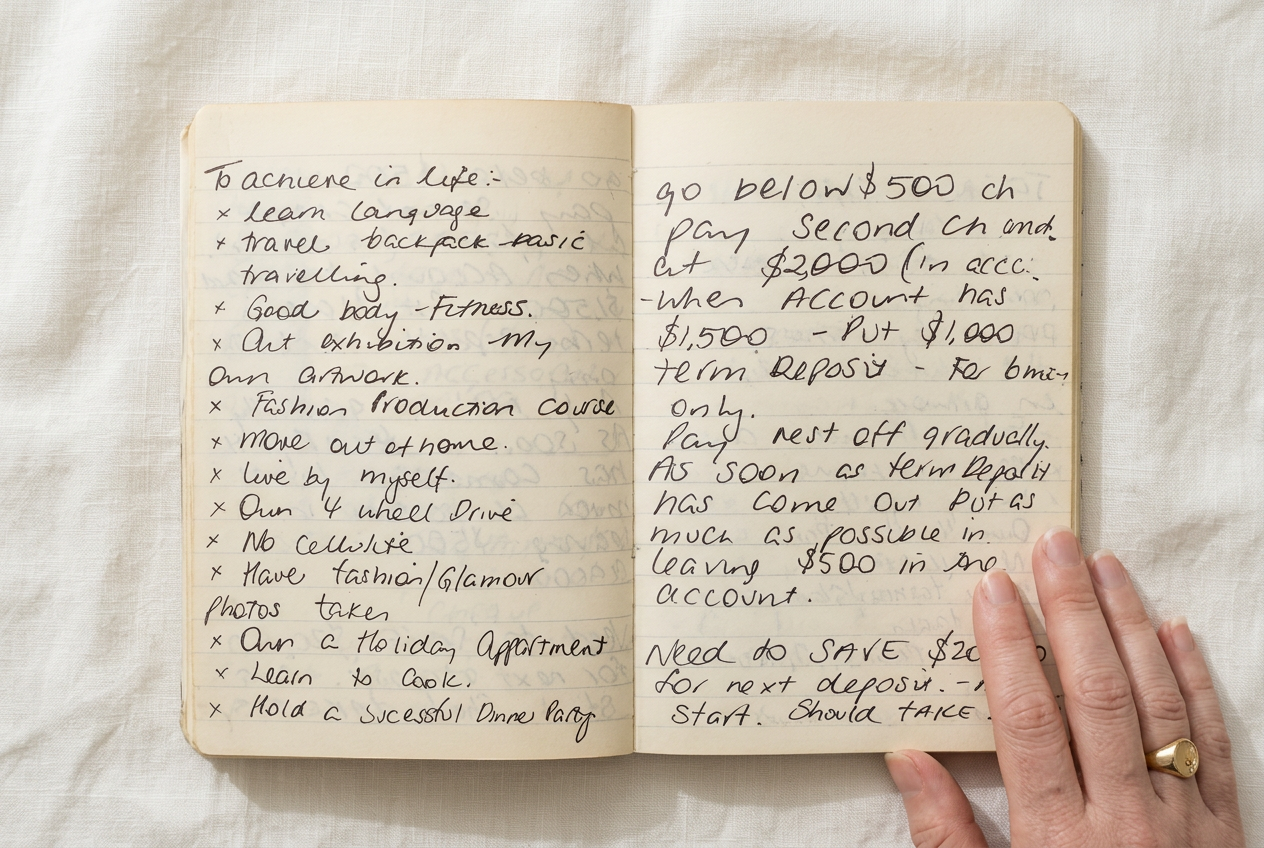 To achieve in life:-
x learn language
x travel backpack basic
travelling.
x Good body - Fitness.
x Art exhibition - My
Own artwork.
x Fashion Production Course
x move out of home.
x Live by myself.
x Own 4 wheel Drive
x No Cellulite
x Have fashion/Glamour
photos taken
x Own a Holiday Appartment
x Learn to Cook.
x Hold a Sucessful Dinne Party
go below $500 ch
pay Second Ch
at $2,000 (in acc
- when Account has
$1,500 - Put $1,000
term Deposit - For
only.
Pay rest off gradually.
As soon as term Deposit
has come out Put as
much as possible in.
leaving $500 in the
account.
Need to SAVE
for next deposit. -
start. Should TAKE